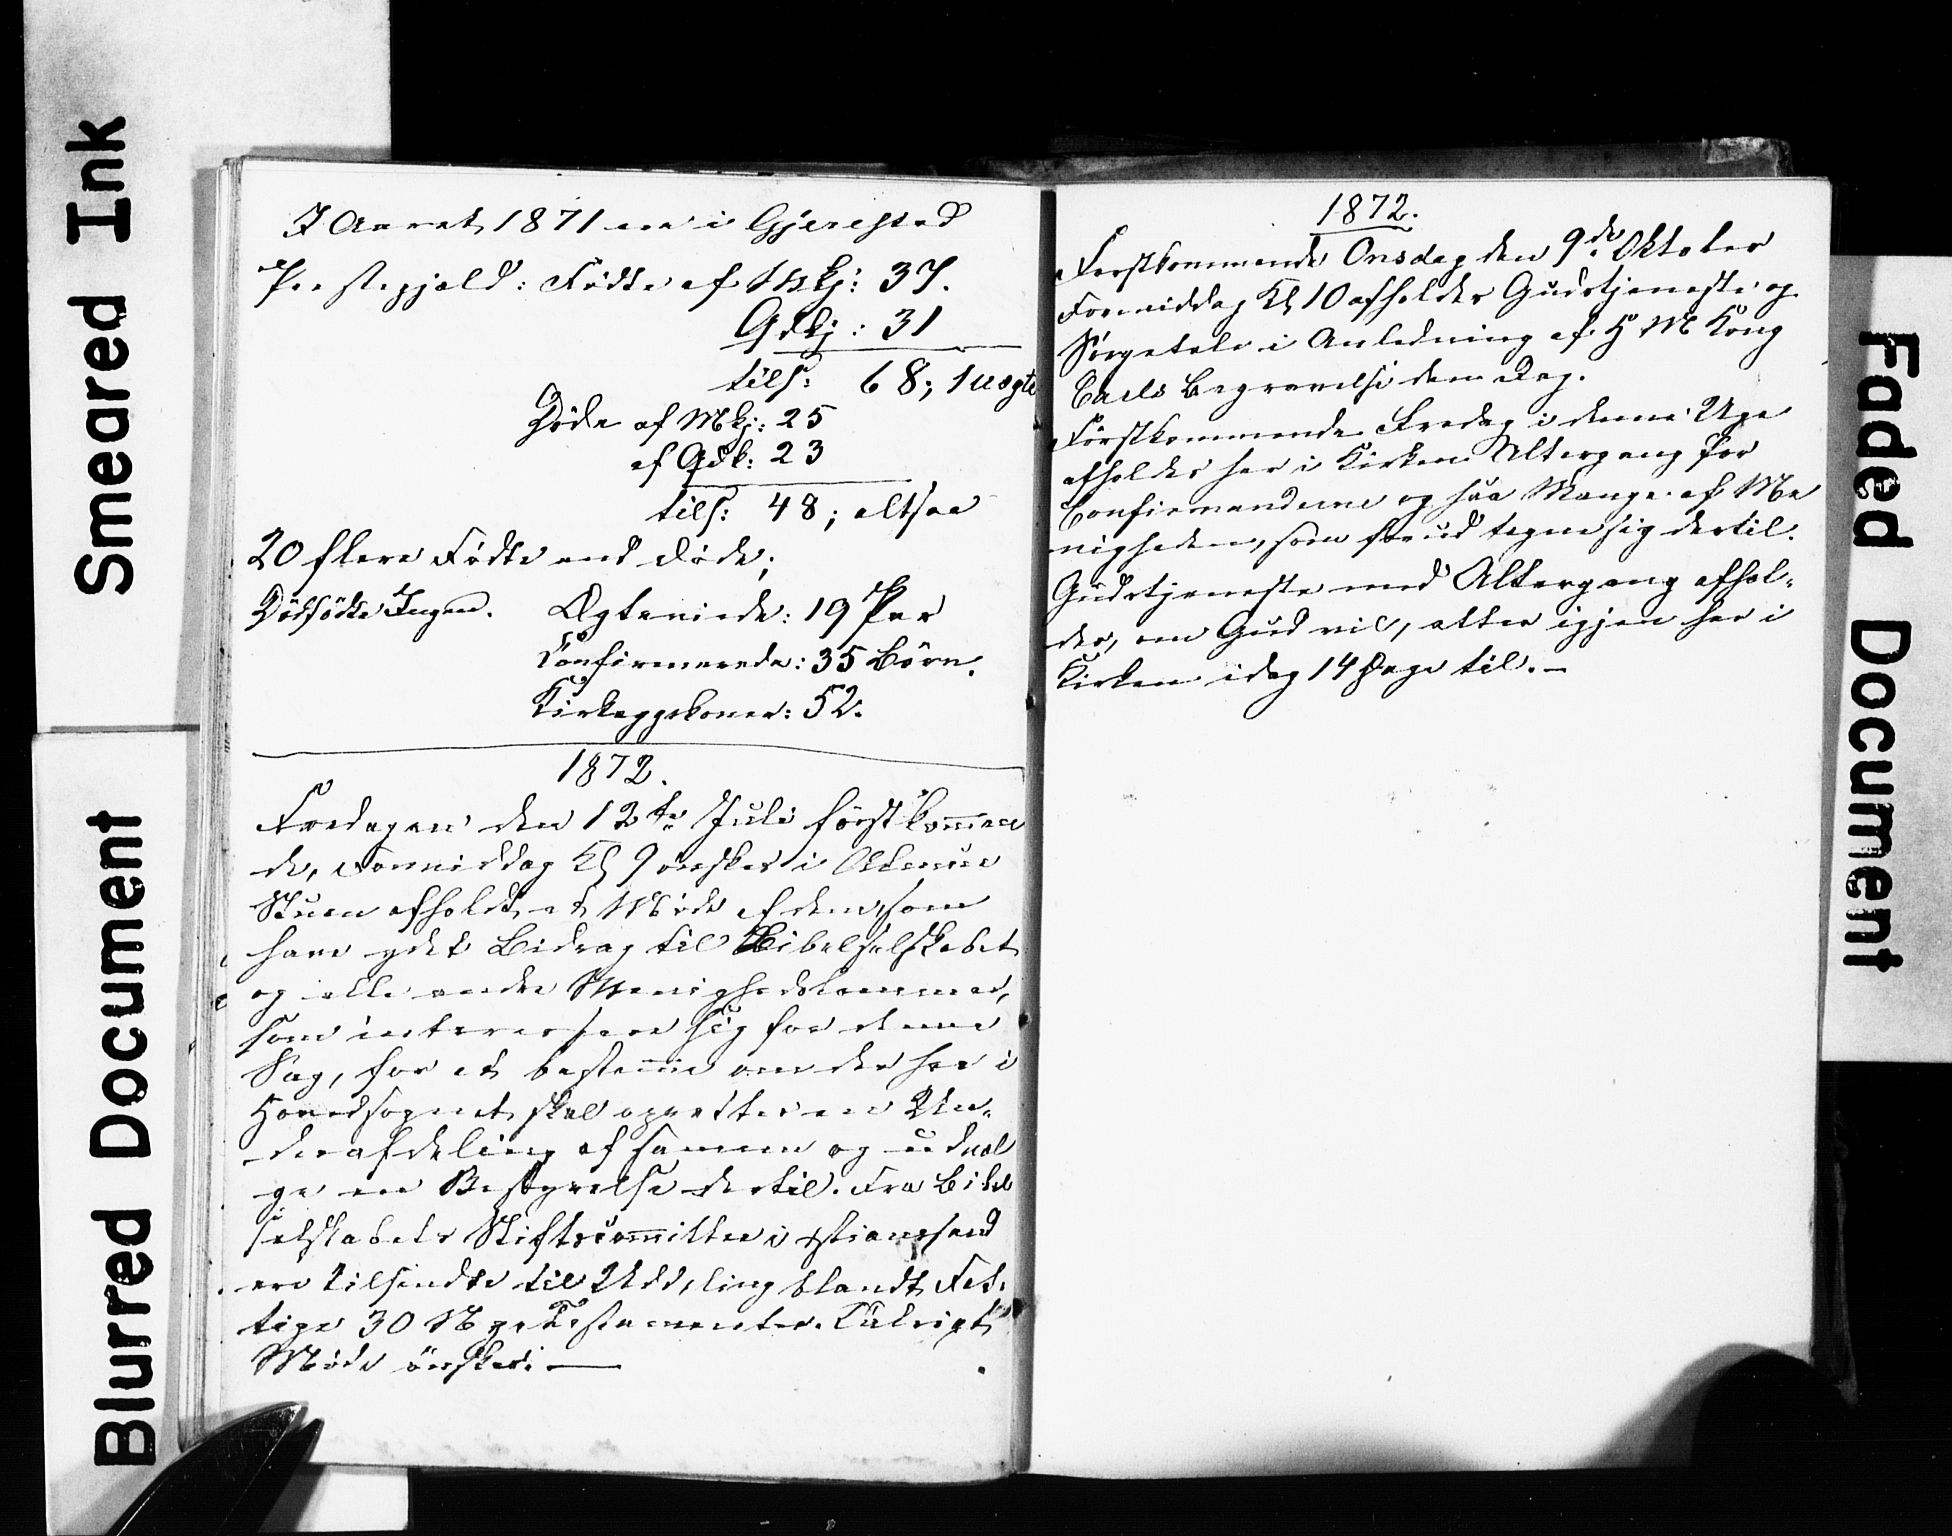 Smeared Ink
Blurred Document
Faded Document
I Aaret 1871 ere i Gjerestad
Præstegjæld: Fødte af Mskj: 37.
Gdkj: 31
tils: 68; 1 uægte
Døde af Mkj: 25
af Gdk: 23
tils: 48; altsaa
20 flere Fødte end Døde;
Dødfødte Ingen. Ægteviede: 19 Par
Confirmerede: 35 Børn.
Kirkegangskoner: 52.
1872.
Fredagen den 12te Juli førstkommen
de, Formiddag Kl 9 ønskes i Almue
Stuen afholdt et Møde af dem, som
have ydet Bidrag til Bibelselskabet
og alle andre Menighedslemmer,
som interessere sig for denne
Sag, for at bestemme om der her i
Hovedsognet skal oprettes en Un-
derafdeling af samme og udvæl
ge en Bestyrelse dertil. Fra Bibel
selskabets Stiftscommittee i Xstianssand
ere tilsendte til Uddeling blandt Fat-
tige 30 Nye Testamenter. Talrigt
Møde ønskes.
1872.
Førstkommende Onsdag den 9de Oktober
Formiddag Kl 10 afholdes Gudstjeneste og
Sørgetale i Anledning af H M Kong
Carls Begravelse den Dag.
Førstkommende Fredag i denne Uge
afholdes her i Kirken Altergang for
Confirmanderne og saa Mange af Me
nigheden, som forud tegne sig dertil.
Gudstjeneste med Altergang afhol-
des, om Gud vil, atter igjen her i
Kirken idag 14 Dage til.